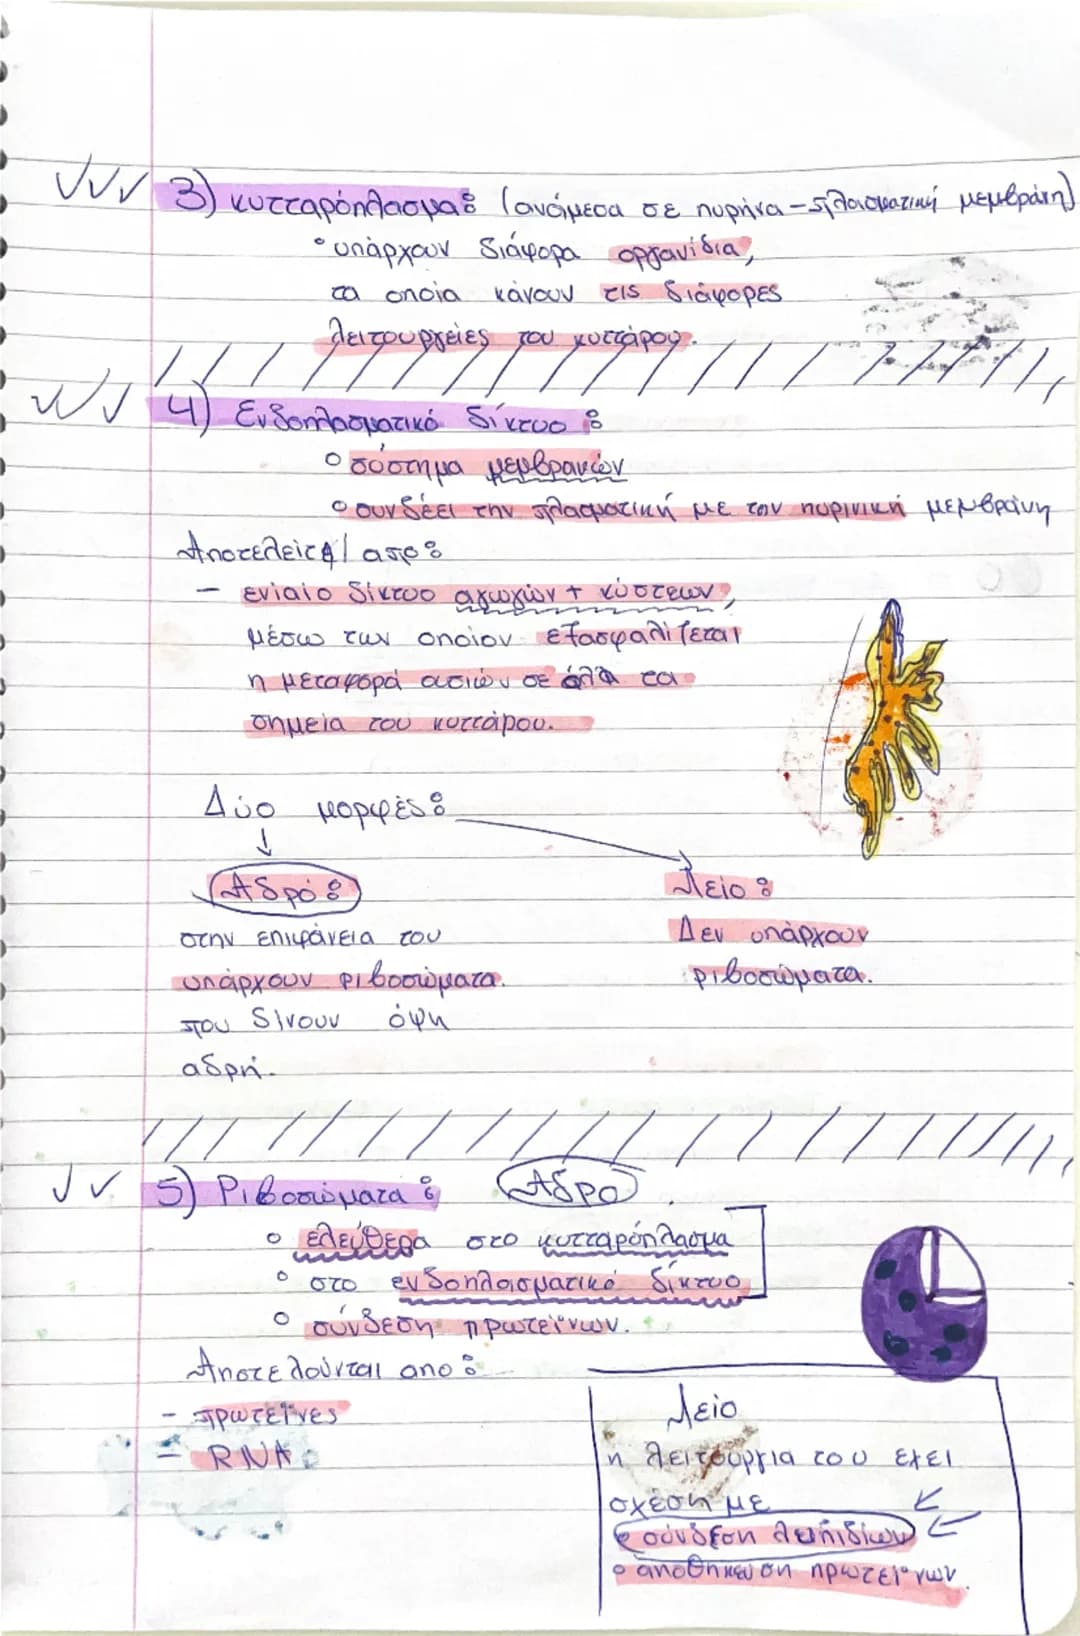 3) κυτταρόπλασμα: (ανάμεσα σε πυρήνα - πλασματική μεμβράνη)
• υπάρχουν διάφορα οργανίδια,
τα οποία κάνουν τις διάφορες
λειτουργείες του κυττάρου.
4) Ενδοπλασματικό δίκτυο:
○ σύστημα μεμβρανών
○ συνδέει την πλασματική με την πυρινική μεμβράνη
Αποτελείται απο:
- ενιαίο δίκτυο αγωγών + κύστεων,
μέσω των οποίον εξασφαλίζεται
η μεταφορά ουσιών σε όλα τα
σημεία του κυττάρου.
Δύο μορφές:
Αδρό:
στην επιφάνεια του
υπάρχουν ριβοσώματα.
που δίνουν όψη
αδρή.
Λείο:
Δεν υπάρχουν
ριβοσώματα.
5) Ριβοσώματα: Αδρό
○ ελεύθερα στο κυτταρόπλασμα
○ στο ενδοπλασματικό δίκτυο
○ σύνδεση πρωτεϊνων.
Αποτελούνται απο:
- πρωτεΐνες
- RNA
Λείο
η λειτουργια του εχει
σχέση με
• σύνδεση λιπιδίων
○ αποθηκευση πρωτεϊνων.